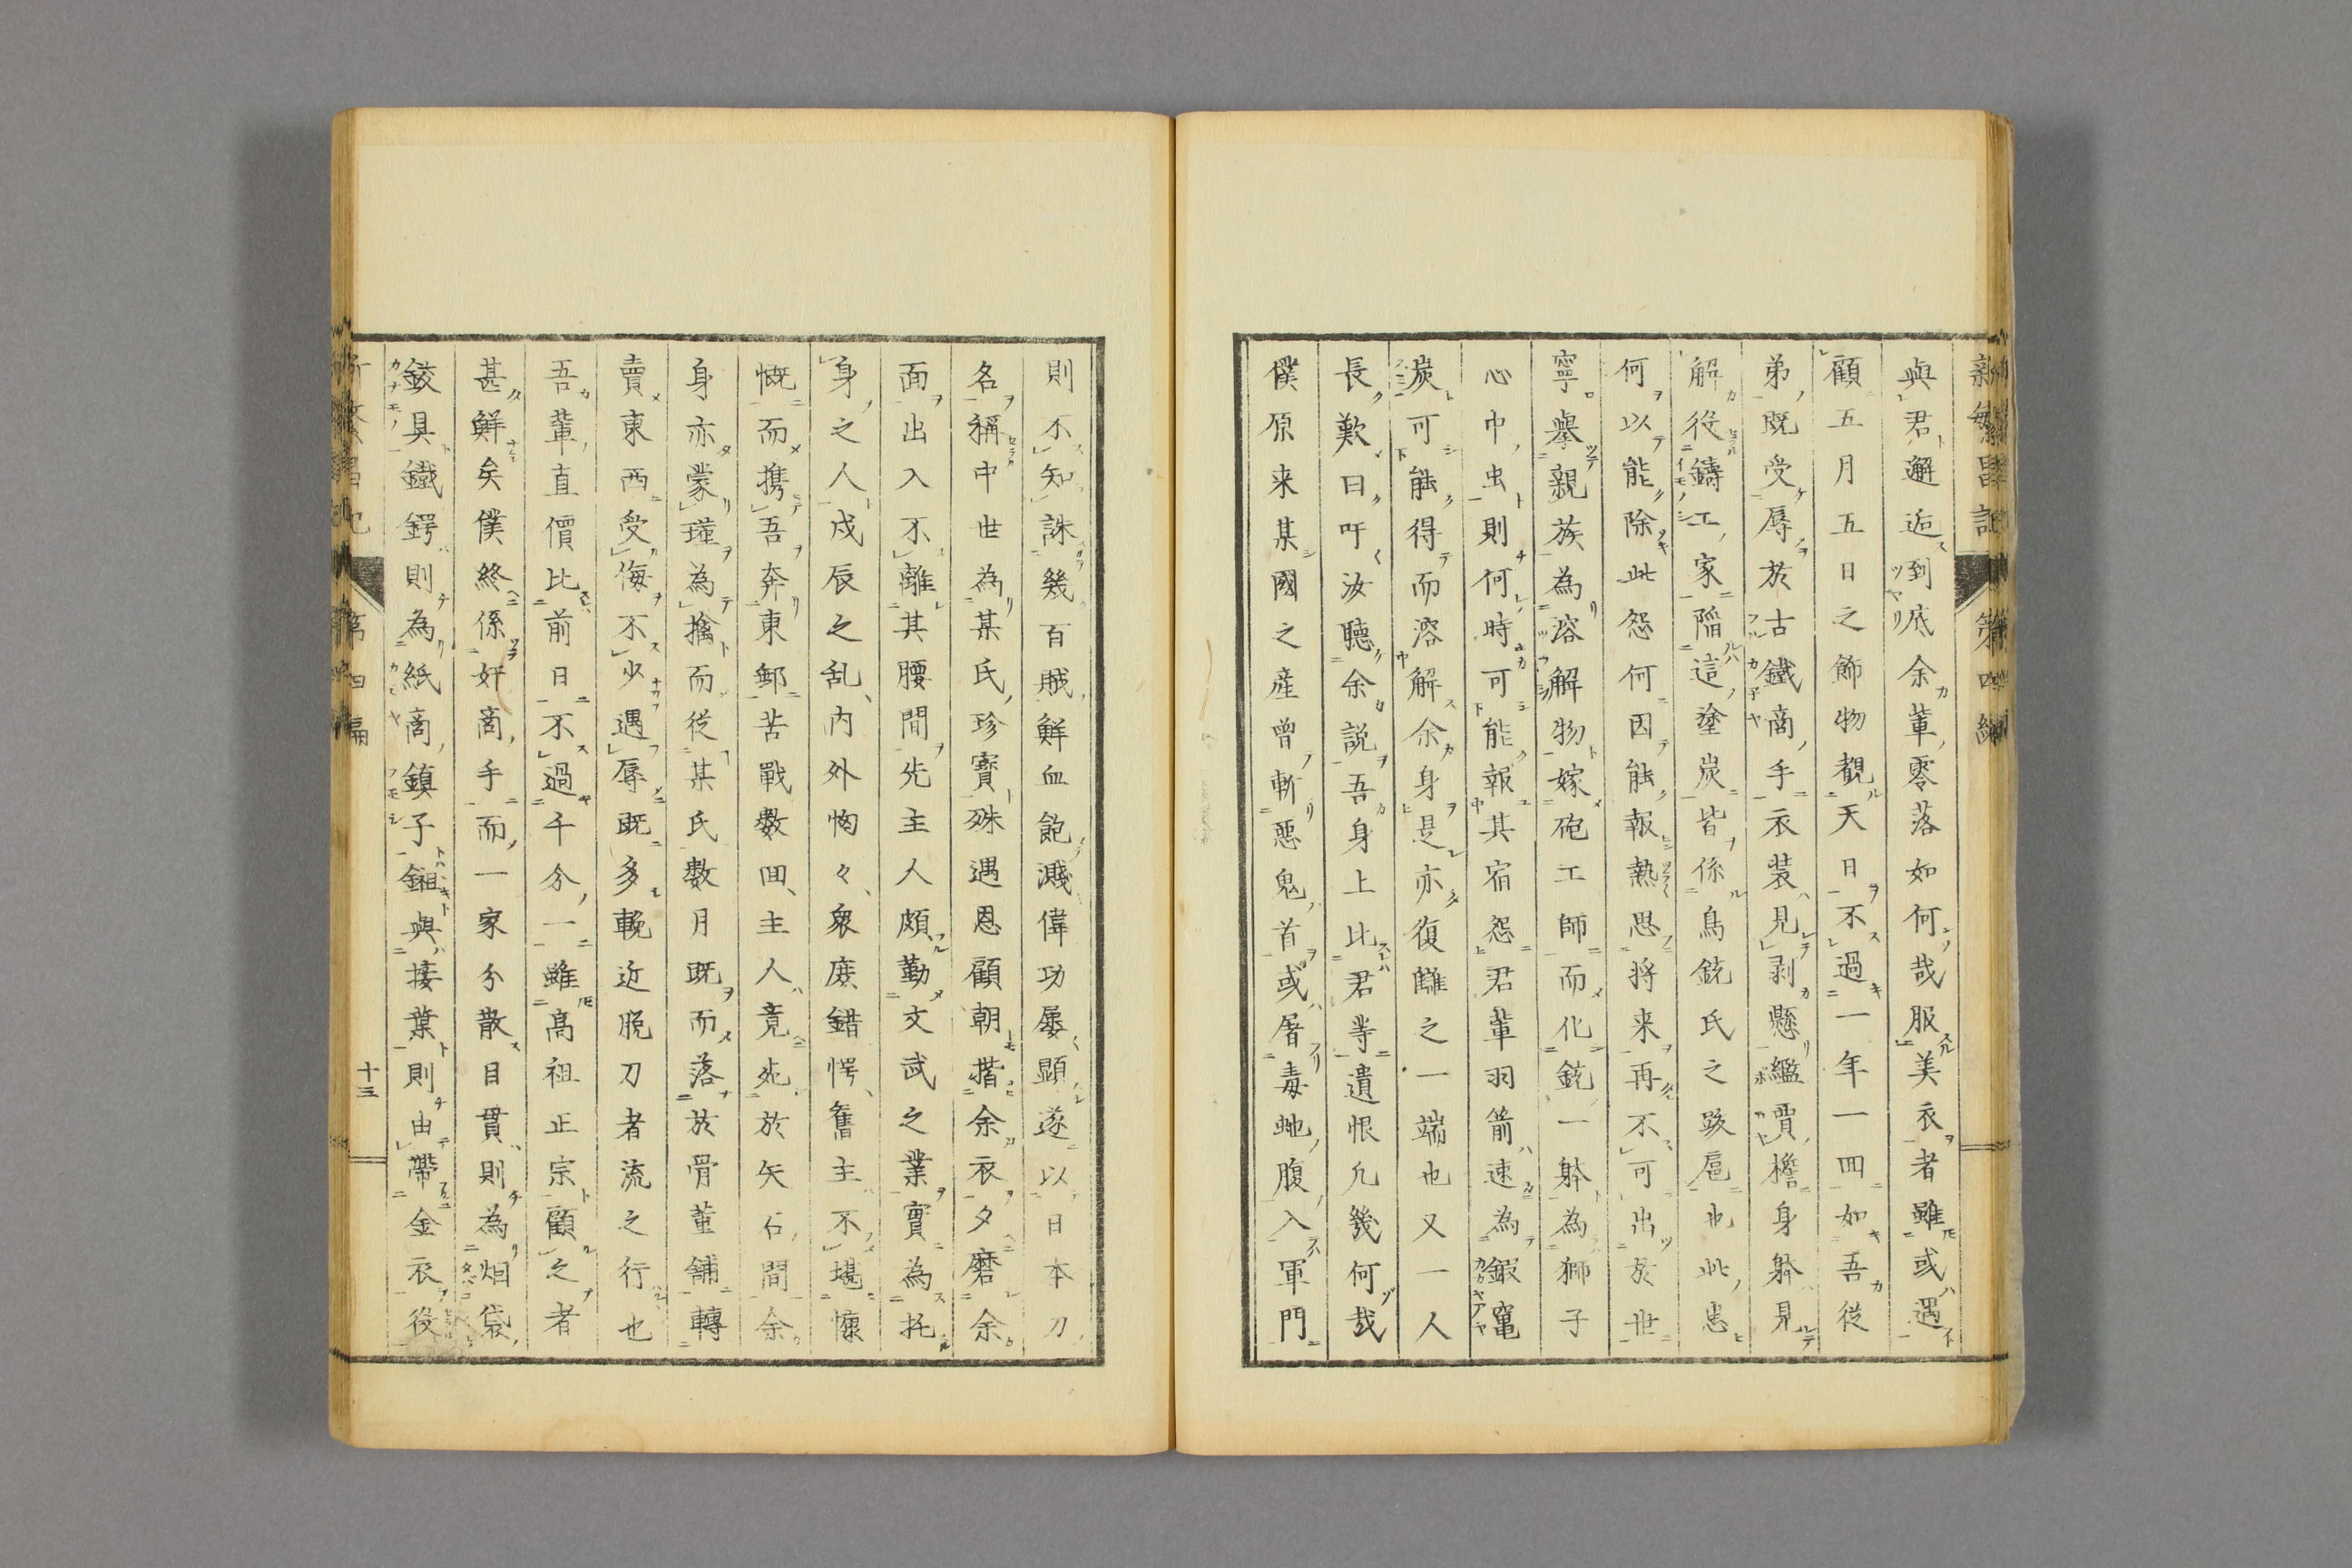 與君邂逅到底余輩零落如何哉服美衣者雖或遇
顧五月五日之飾物覩天日不過一年一四如吾従
弟既受辱於古鐵商手衣装見剥懸繿賈檐身躰見
解役鑄工家陥這塗炭皆係鳥銃氏之跋扈也此恚
何以能除此怨何因能報熱思将来再不可出於世
寧擧親族為溶解物嫁砲工師而化銃一躰為獅子
心中虫則何時可能報其宿怨君輩羽箭速為鍜竃
炭可能得而溶解余身是亦復讎之一端也又一人
長歎曰吁汝聴余説吾身上比君等遺恨凢幾何哉
僕原来某國之産曾斬惡鬼首或屠毒虵腹入軍門
則不知誅幾百賊鮮血飽濺偉功屡顕遂以日本刀
名稱中世為某氏珍寳殊遇恩顧朝揩余衣夕磨余
面出入不離其腰間先主人頗勤文武之業實為托
身之人戍辰之乱内外恟々衆庶錯愕舊主不堪慷
慨而携吾奔東郵苦戰數回主人竟死於矢石間余
身亦蒙瑾為擒而従某氏數月既而落於骨董舗轉
賣東西受侮不少遇辱既多輓近脱刀者流之行也
吾輩直價比前日不過千分一雖高祖正宗顧之者
甚鮮矣僕終係奸商手而一家分散目貫則為烟袋
鉸具鐵鍔則為紙商鎮子鎺與接葉則由帶金衣役
十三